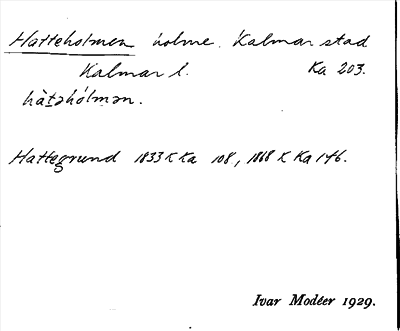 Hatteholmen holme. Kalmar stad
Kalmar l. Ka 203.
hàt̲əhólmən.
Hattegrund 1833 K Ka 108, 1868 K Ka 146.
Ivar Modéer 1929.